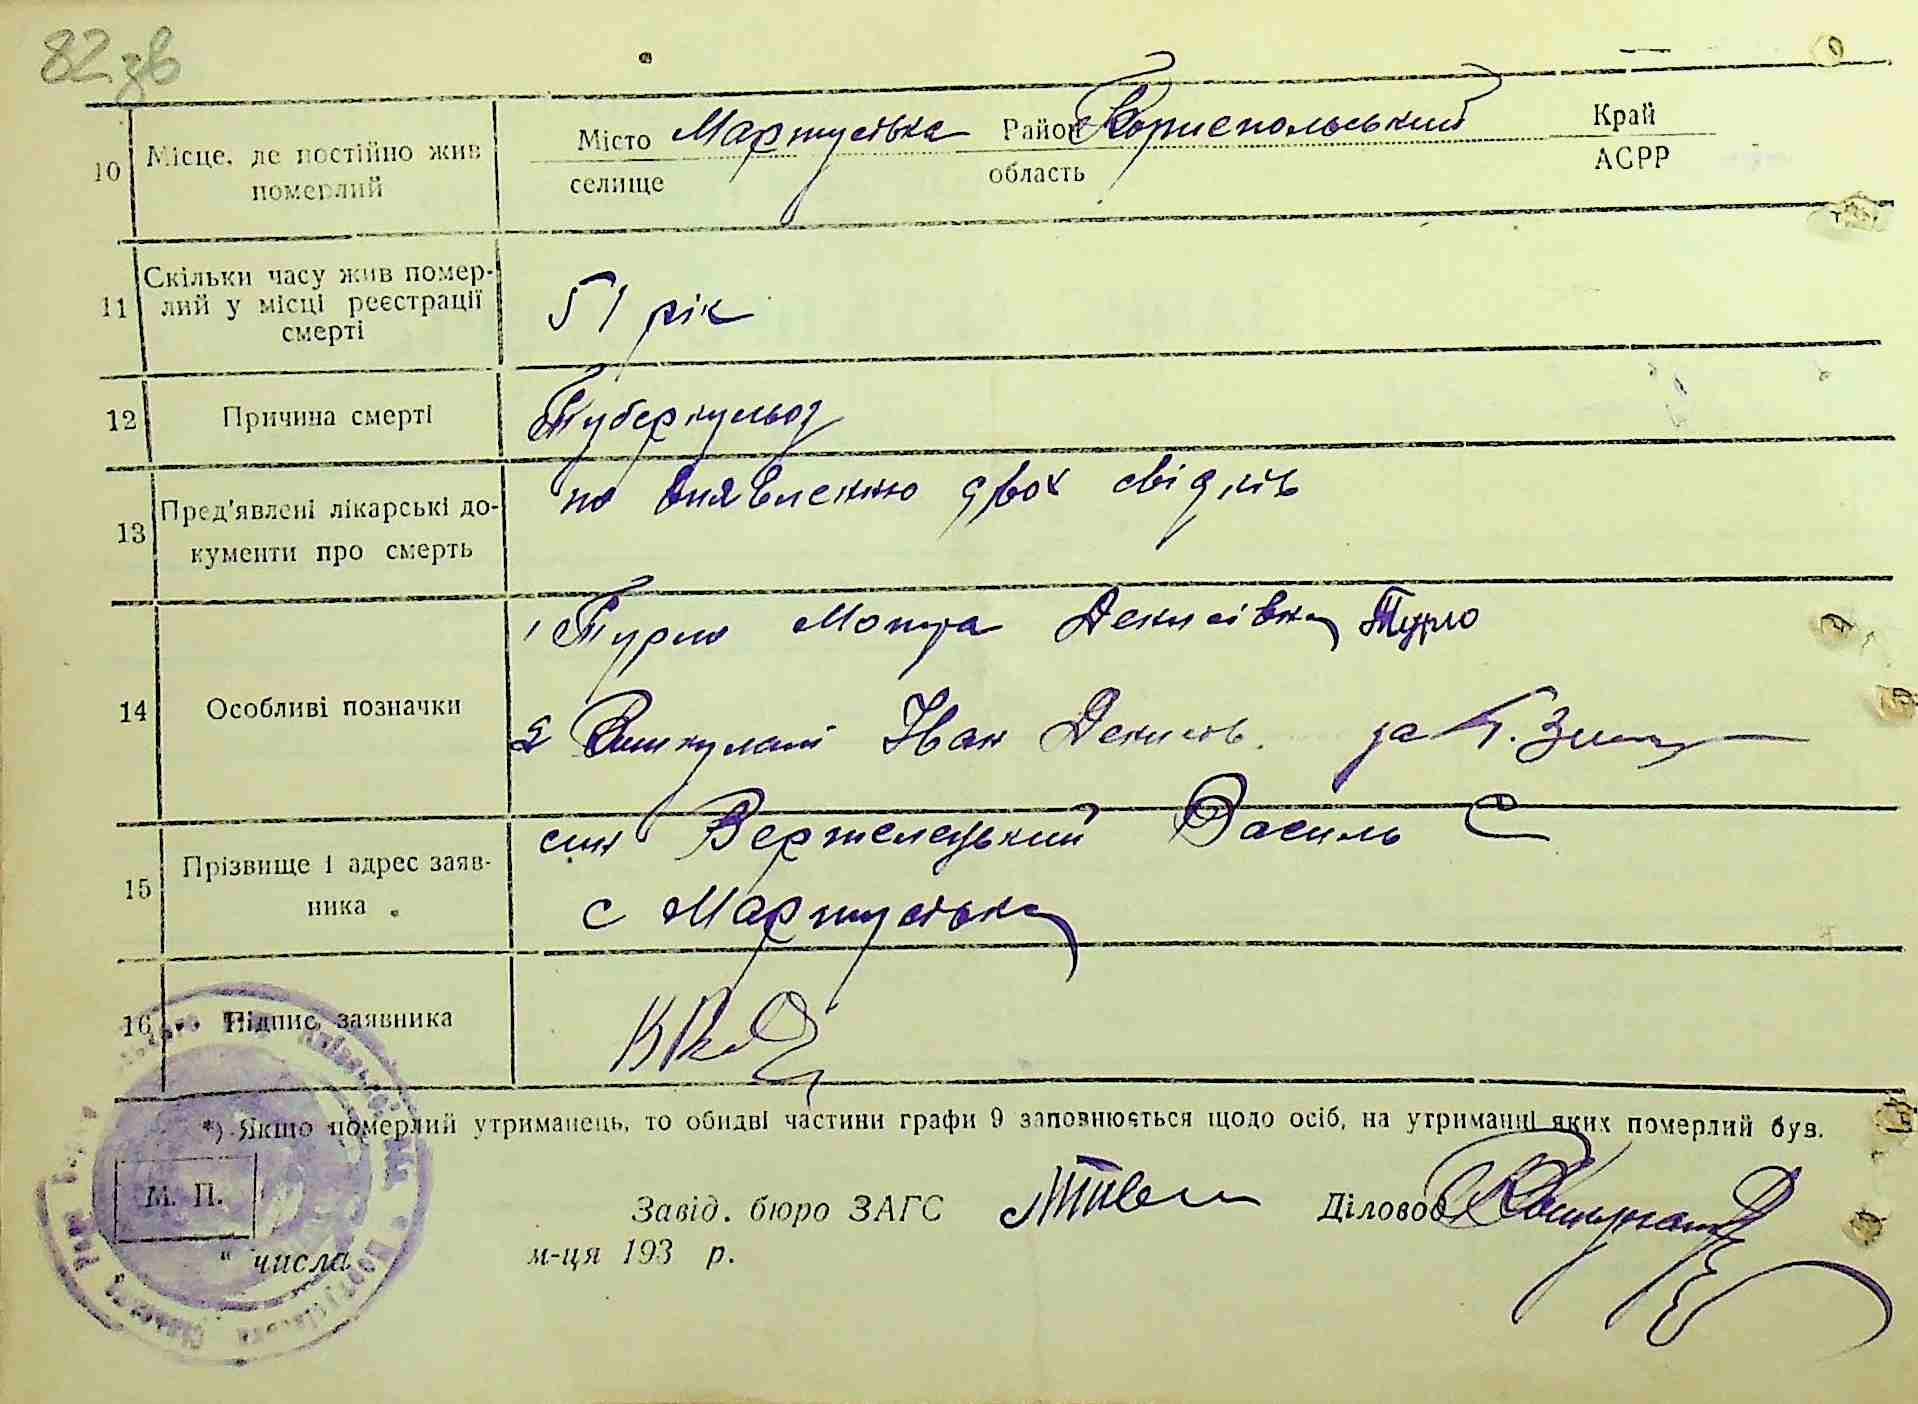 82 зв
10 Місце, де постійно жив померлий
Місто Мартусівка Район Бориспольський Край
селище область АСРР
11 Скільки часу жив помер-
лий у місці реєстрації
смерті
51 рік
12 Причина смерті
Туберкульоз
13 Пред'явлені лікарські до-
кументи про смерть
по виявленню двох свідків
14 Особливі позначки
1 Турло Мотря Денисівна Турло
2 Іван Денисов. за
15 Прізвище і адрес заяв-
ника
син Вертелецький Василь С
с Мартусівка
16 Підпис заявника
*) Якщо померлий утриманець, то обидві частини графи 9 заповнюється щодо осіб, на утриманні яких померлий був.
М. П.
Завід. бюро ЗАГС Діловод
" числа м-ця 193 р.